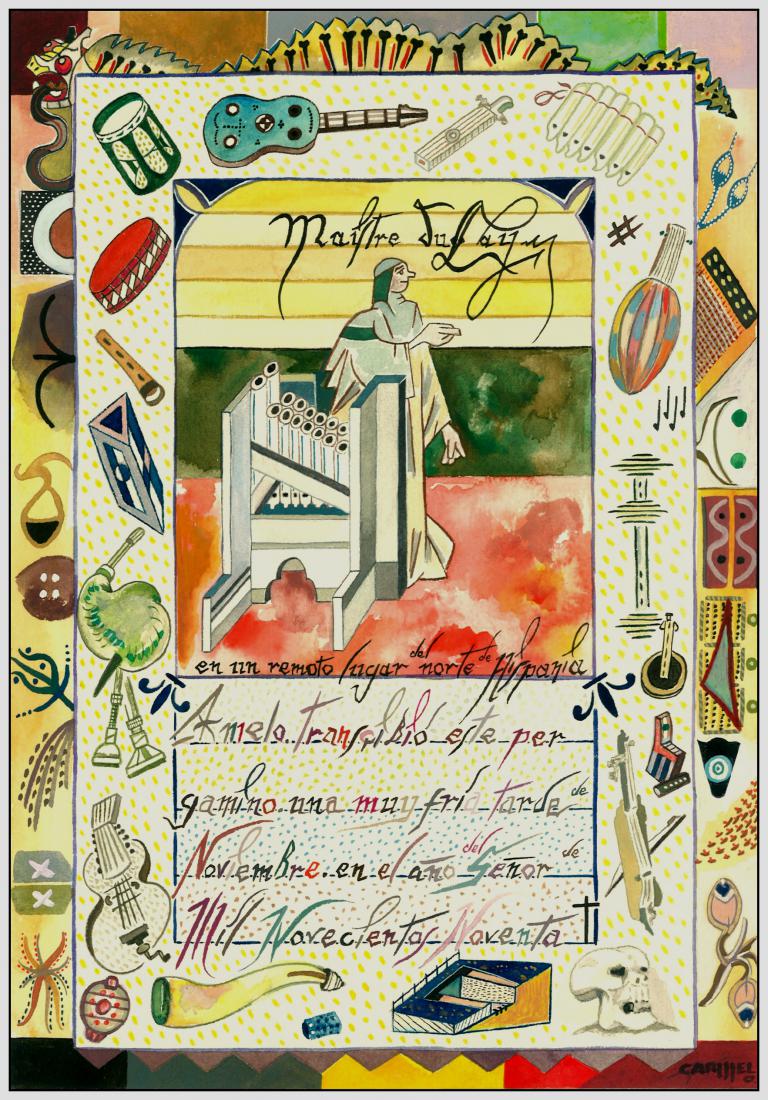 Maistre du Fay
en un remoto lugar del norte de Hispania
Amelo. Transcribió este per
gamino una muy fría tarde de
Noviembre. en el año del Señor de
Mil Novecientos Noventa †
CARMEL